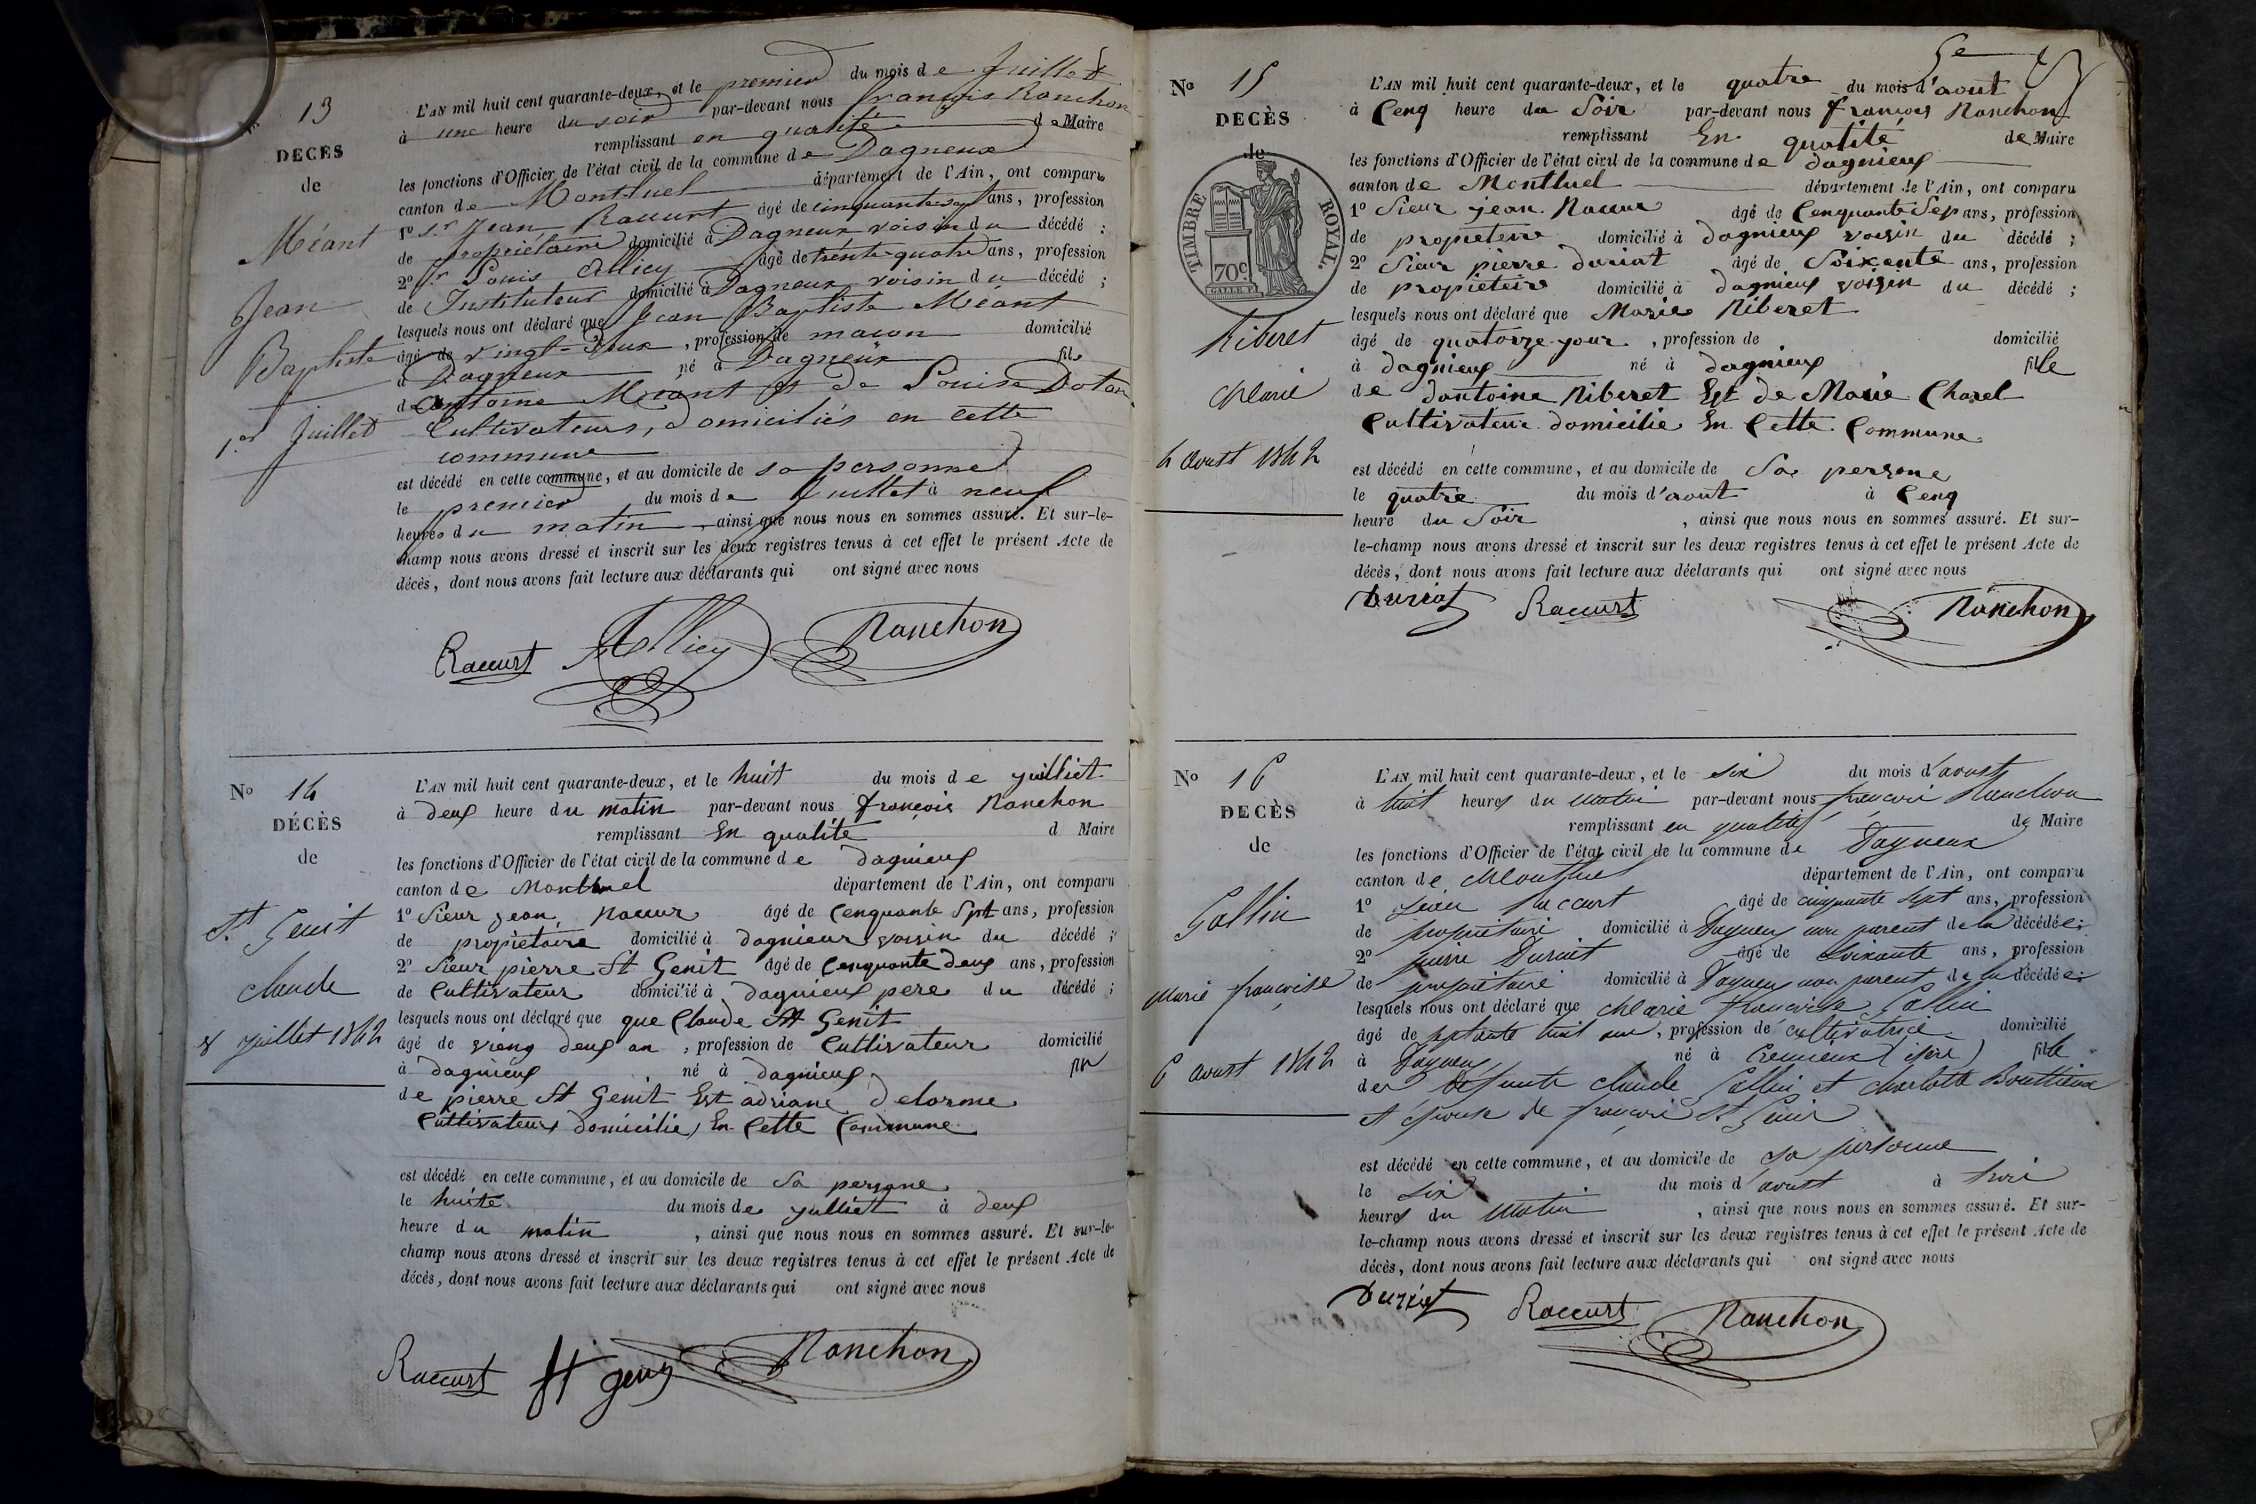 13
DECÈS
de
Méant
Jean
Baptiste
1.er Juillet
L'AN mil huit cent quarante-deux, et le premier du mois de Juillet
à une heure du soir par-devant nous françois Ranchon
remplissant en qualité de Maire
les fonctions d'Officier de l'état civil de la commune de Dagneux
canton de Montluel département de l'Ain, ont comparu
1º S.r Jean Raccurt âgé de cinquante sept ans, profession
de propriétaire domicilié à Dagneux voisin du décédé ;
2º S.r Louis Allicy âgé de trente-quatre ans, profession
de Instituteur domicilié à Dagneux voisin du décédé ;
lesquels nous ont déclaré que Jean Baptiste Méant
âgé de vingt-deux, profession de macon domicilié
à Dagneux né à Dagneux fils
de Antoine Méant et de Louise Dotan
Cultivateurs, domiciliés en cette
commune
est décédé en cette commune, et au domicile de sa personne
le premier du mois de Juillet à neuf
heures du matin, ainsi que nous nous en sommes assuré. Et sur-le-
champ nous avons dressé et inscrit sur les deux registres tenus à cet effet le présent Acte de
décès, dont nous avons fait lecture aux déclarants qui ont signé avec nous
Raccurt Allicy Ranchon
Nº 14
DÉCÈS
de
St. Genit
claude
8 juillet 1842
L'AN mil huit cent quarante-deux, et le huit du mois de juilliet
à deux heure du matin par-devant nous françois Ranchon
remplissant En qualité d Maire
les fonctions d'Officier de l'état civil de la commune de dagnieux
canton de Montluel département de l'Ain, ont comparu
1º Sieur jean Raccur âgé de Cenquante Sept ans, profession
de propietaire domicilié à dagnieux voisin du décédé ;
2º Sieur pierre St Genit âgé de Cenquante deux ans, profession
de Cultivateur domicilié à dagnieux pere du décédé ;
lesquels nous ont déclaré que que Claude St Genit
âgé de vienq deux an, profession de Cultivateur domicilié
à dagnieux né à dagnieux
de pierre St Genit Est adriane delorme
Cultivateur domicilie En Cette Commune
est décédé en cette commune, et au domicile de Sa persone
le huite du mois de julliet à deux
heure du matin, ainsi que nous nous en sommes assuré. Et sur-le-
champ nous avons dressé et inscrit sur les deux registres tenus à cet effet le présent Acte de
décès, dont nous avons fait lecture aux déclarants qui ont signé avec nous
Raccurt St Ranchon
5e
Nº 15
DECÈS
de
TIMBRE ROYAL.
70c
Riberet
Marie
4 avust 1842
L'AN mil huit cent quarante-deux, et le quatre du mois d'aout
à Cenq heure du Soir par-devant nous françois Ranchon
remplissant En qualité de Maire
les fonctions d'Officier de l'état civil de la commune de dagnieux
canton de Montluel département de l'Ain, ont comparu
1º Sieur jean Raccur âgé de Cenquante Sep ans, profession
de propieteire domicilié à dagnieux voisin du décédé ;
2º Sieur pierre duriat âgé de Soixente ans, profession
de propieteire domicilié à dagnieux voisin du décédé ;
lesquels nous ont déclaré que Marie Riberet
âgé de quatorze jour, profession de domicilié
à dagnieux né à dagnieux fille
de dantoine Riberet Est de Marie Charel
Cultivateur domicilie En Cette Commune
est décédé en cette commune, et au domicile de Sa persone
le quatre du mois d'aout à Cenq
heure du Soir, ainsi que nous nous en sommes assuré. Et sur-
le-champ nous avons dressé et inscrit sur les deux registres tenus à cet effet le présent Acte de
décès, dont nous avons fait lecture aux déclarants qui ont signé avec nous
Duriat Raccurt Ranchon
Nº 16
DECÈS
de
Collin
Marie françoise
6 avust 1842
L'AN mil huit cent quarante-deux, et le six du mois d'avust
à huit heures du matin par-devant nous françois Ranchon
remplissant en qualité de Maire
les fonctions d'Officier de l'état civil de la commune de Dagneux
canton de Montluel département de l'Ain, ont comparu
1º Jean Raccurt âgé de cinquante sept ans, profession
de propriétaire domicilié à Dagneux non parent de la décédée ;
2º pierre Duriat âgé de soixante ans, profession
de propriétaire domicilié à Dagneux non parent de la décédée ;
lesquels nous ont déclaré que Marie françoise Collin
âgé de septante huit ans, profession de cultivatrice domicilié
à Dagneux né à Cremieux (isère) fille
de defunts claude Collin et charlotte Bouttieux
et épouse de françois St Genis
est décédé en cette commune, et au domicile de sa personne
le six du mois d'avust à trois
heures du matin, ainsi que nous nous en sommes assuré. Et sur-
le-champ nous avons dressé et inscrit sur les deux registres tenus à cet effet le présent Acte de
décès, dont nous avons fait lecture aux déclarants qui ont signé avec nous
Duriat Raccurt Ranchon